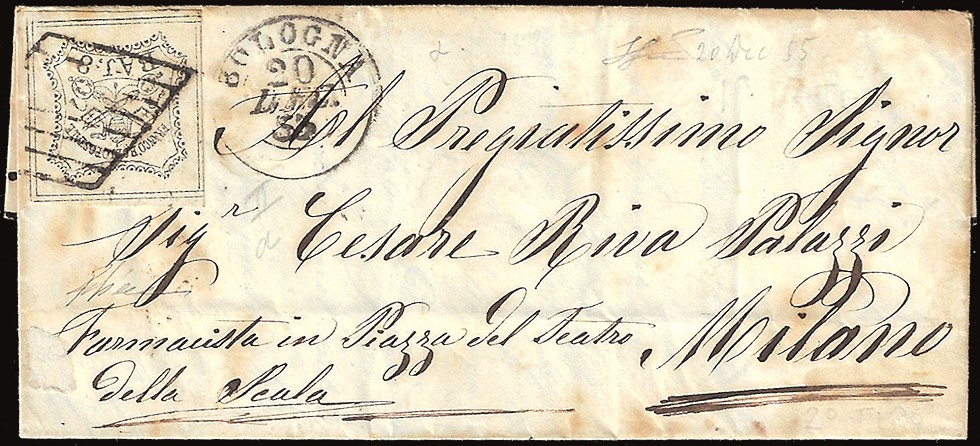 BAJ 8
FRANCO BOLLO POSTALE
BOLOGNA
20
DIC.
55
20 Dic 55
Al Pregiatissimo Signor
Sigr Cesare Riva Palazzi
Farmacista in Piazza del Teatro
della Scala
Milano